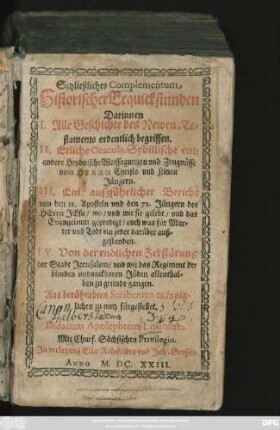 Schließliches Complementum,
Historischer Erquickstunden
Darinnen
I. Alle Geschichte des Newen Te-
staments ordentlich begriffen.
II. Etliche Oracula, Sybillische vnd
andere Heydnische Weissagungen vnd Zeugnüsse
vom HERRN Christo vnd seinen
Jüngern.
III. Ein außführlicher Bericht
von den 12. Aposteln vnd den 72. Jüngern des
HErrn JEsu/ wo/ vnd wie sie gelebt/ vnd das
Evangelium gepredigt/ auch was für Mar-
ter vnd Todt ein jeder darüber auß-
gestanden.
IV. Von der endlichen Zerstörung
der Stadt Jerusalem/ vnd wie das Regiment der
blinden vndanckbaren Jüden allenthal-
ben zu grunde gangen.
Aus berühmbten Scribenten männig-
lichen zu nutz fürgestellet,
Didacum Apolephtem
Mit Churf. Sächsischen Privilegio.
In verlegung Eliæ Rehefeldes vnd Joh. Grossen
ANNO M. DC. XXIII.